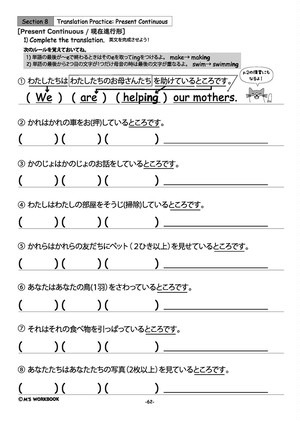 Section 8 Translation Practice: Present Continuous
[Present Continuous / 現在進行形]
1) Complete the translation. 英文を完成させよう!
次のルールを覚えておいてね。
1) 単語の最後が〜eで終わるときはそのeを取ってingをつけるよ。 make→ making
2) 単語の最後から2つ目の文字が1つだけの母音の時は最後の文字が重なるよ。 swim→ swimming
① わたしたちは わたしたちのお母さんたち を助けているところです。
( We ) ( are ) ( helping ) our mothers.
② かれはかれの車をお(押)しているところです。
( )( ) ( )
③ かのじょはかのじょのお話をしているところです。
( )( ) ( )
④ わたしはわたしの部屋をそうじ(掃除)しているところです。
( )( ) ( )
⑤ かれらはかれらの友だちにペット(2ひき以上)を見せているところです。
( )( ) ( )
⑥ あなたはあなたの鳥(1羽)をさわっているところです。
( )( ) ( )
⑦ それはそれの食べ物を引っぱっているところです。
( )( ) ( )
⑧ あなたたちはあなたたちの写真(2枚以上)を見ているところです。
( )( ) ( )
©M'S WORKBOOK
-62-